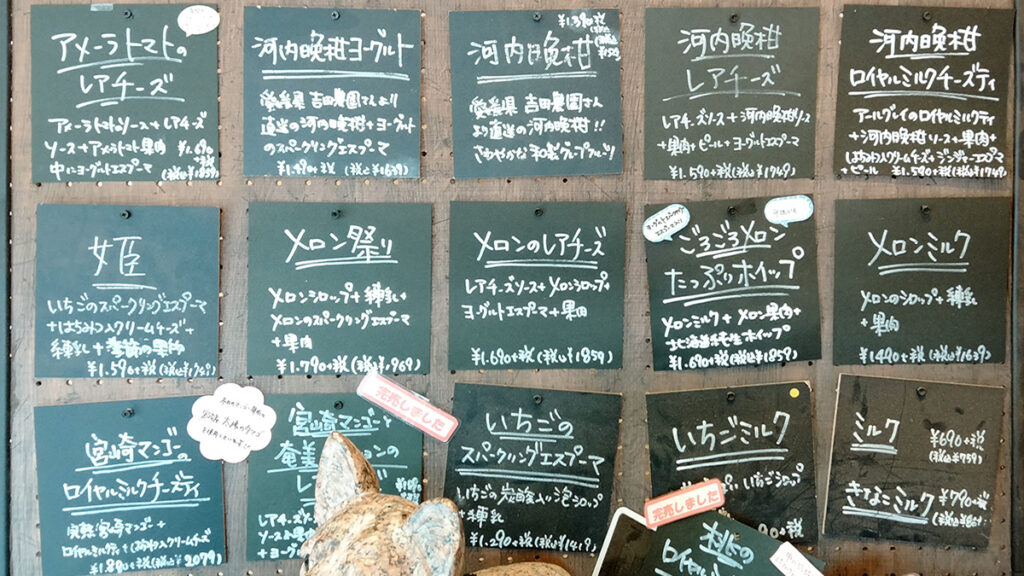 アメーラトマトの
レアチーズ
アメーラトマトソース+レアチーズ
ソース+アメーラトマト果肉
中にヨーグルトエスプーマ
¥1,690+税
(税込¥1859)
河内晩柑ヨーグルト
愛媛県 吉田農園さんより
直送の河内晩柑+ヨーグルト
のスパークリングエスプーマ
¥1,490+税 (税込¥1639)
¥1,390+税
河内晩柑
愛媛県 吉田農園さん
より直送の河内晩柑!!
さわやかな和製グレープフルーツ
河内晩柑
レアチーズ
レアチーズソース+河内晩柑ソース
+果肉+ピール+ヨーグルトエスプーマ
¥1,590+税(税込¥1749)
河内晩柑
ロイヤルミルクチーズティ
アールグレイのロイヤルミルクティ
+河内晩柑ソース+果肉+
はちみつ入クリームチーズ+ジンジャーエスプーマ
+ピール ¥1,590+税(税込¥1749)
姫
いちごのスパークリングエスプーマ
+はちみつ入クリームチーズ+
練乳+季節の果物
メロン祭り
メロンシロップ+練乳+
メロンのスパークリングエスプーマ
+果肉
¥1,790+税(税込¥1969)
メロンのレアチーズ
レアチーズソース+メロンシロップ+
ヨーグルトエスプーマ+果肉
¥1,690+税(税込¥1859)
ごろごろメロン
たっぷりホイップ
メロンミルク+メロン果肉+
北海道純生ホイップ
¥1,690+税(税込¥1859)
メロンミルク
メロンのシロップ+練乳
+果肉
¥1490+税(税込¥1639)
宮崎マンゴーの
ロイヤルミルクチーズティ
完熟宮崎マンゴー+
ロイヤルミルクティ+はちみつ入クリームチーズ
¥1,890+税(税込¥2079)
完売しました
宮崎マンゴーと
奄美
の
レ
レアチーズ
ソース
+ヨーグ
いちごの
スパークリングエスプーマ
いちごの炭酸入り泡シロップ
+練乳
¥1,290+税(税込¥1419)
いちごミルク
いちごシロップ
90+税
ミルク ¥690+税
(税込¥759)
きなこミルク ¥790+税
完売しました
桃の
ロイヤ